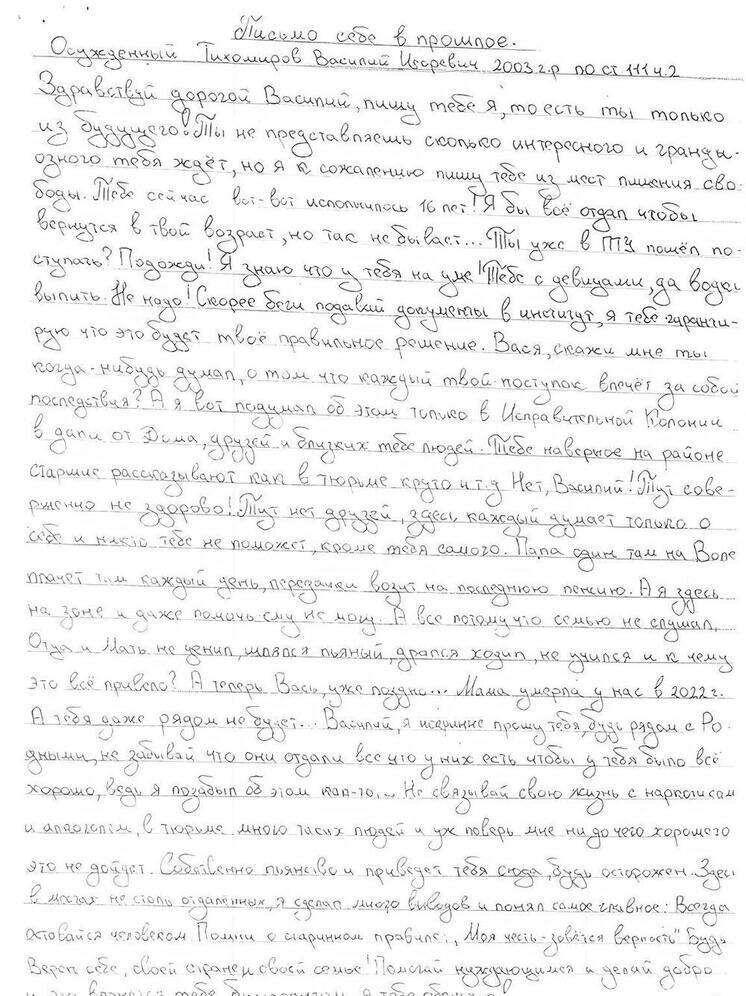 Письмо себе в прошлое.
Осужденный Тихомиров Василий Игоревич 2003 г.р по ст 111 ч.2
Здравствуй дорогой Василий, пишу тебе я, то есть ты только
из будущего! Ты не представляешь сколько интересного и гранди-
озного тебя ждёт, но я к сожалению пишу тебе из мест лишения сво-
боды. Тебе сейчас вот-вот исполнилось 16 лет! Я бы всё отдал чтобы
вернутся в твой возраст, но так не бывает... Ты уже в ТЦ пошёл по-
ступать? Подожди! Я знаю что у тебя на уме! Тебе с девицами, да водки
выпить. Не надо! Скорее беги подавай документы в институт, я тебе гаранти-
рую что это будет твоё правильное решение. Вася, скажи мне ты
когда-нибудь думал, о том что каждый твой поступок влечёт за собой
последствия? А я вот подумал об этом только в Исправительной Колонии
в дали от Дома, друзей и близких тебе людей. Тебе наверное на районе
старшие рассказывают как в тюрьме круто и т.д Нет, Василий! Тут сове-
ршенно не здорово! Тут нет друзей, здесь каждый думает только о
себе и никто тебе не поможет, кроме тебя самого. Папа один там на Воле
плачет там каждый день, передачки возит на последнюю пенсию. А я здесь
на зоне и даже помочь ему не могу. А все потому что семью не слушал,
Отца и Мать не ценил, шлялся пьяный, дрался ходил, не учился и к чему
это всё привело? А теперь Вась, уже поздно... Мама умерла у нас в 2022 г.
А тебя даже рядом не будет... Василий, я искренне прошу тебя, будь рядом с Ро-
дными, не забывай что они отдали все что у них есть чтобы у тебя было всё
хорошо, ведь я позабыл об этом как-то... Не связывай свою жизнь с наркотикам
и алкоголем, в тюрьме много таких людей и уж поверь мне ни до чего хорошего
это не дойдет. Собственно пьянство и приведет тебя сюда, будь осторожен. Здесь
в местах не столь отдалённых, я сделал много выводов и понял самое главное: Всегда
оставайся человеком Помни о старинном правиле: „Моя честь - зовётся верность" Будь
Верен себе, своей стране и своей семье! Помогай нуждающимся и делай добро